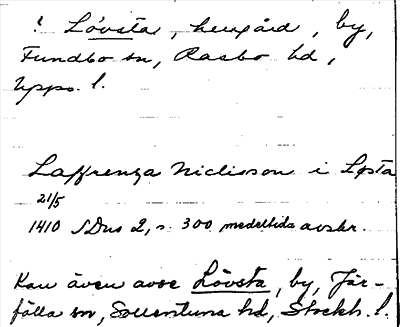 ? Lövsta, herrgård, by,
Funbo sn, Rasbo hd,
Upps. l.
Laffrenza Niclisson i Løsta
21/5
1410 SDns 2, s. 300 medeltida avskr.
Kan även avse Lövsta, by, Jär-
fälla sn, Sollentuna hd, Stockh. l.